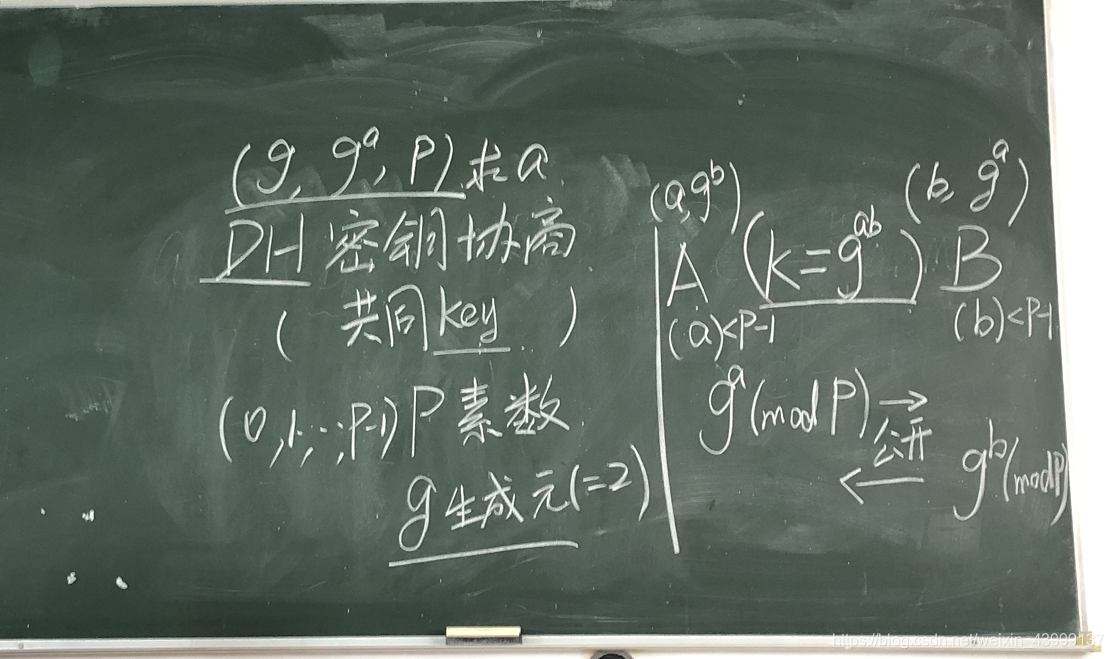 (g, g^a, P) 求a
DH 密钥协商
( 共同key )
(0,1,…,P-1) P 素数
g 生成元(=2)
(a,g^b)
(b, g^a)
A (k=g^ab) B
(a)<P-1
(b)<P-1
g^a(mod P) →
公开
← g^b(mod P)
https://blog.csdn.net/weixin_43999137